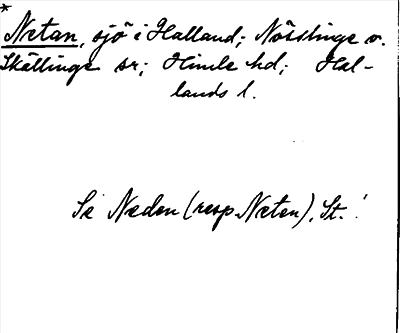 *
Nætan, sjö i Halland; Nösslinge o.
Skällinge sr; Himle hd; Hal-
lands l.
Se Næden (resp. Næten), St.!